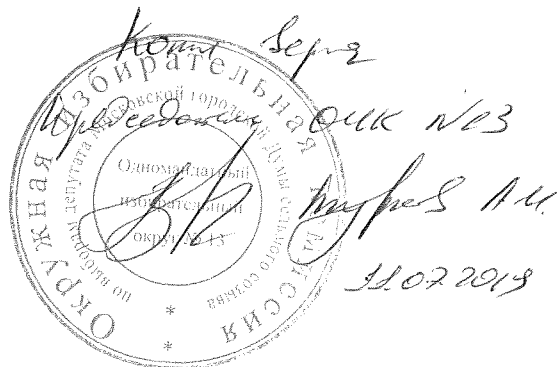 Копия Верна
Председатель ОИК №13
А.И.
11.07.2019
Окружная избирательная комиссия
по выборам депутата Московской городской Думы седьмого созыва
Одномандатный
избирательный
округ № 13